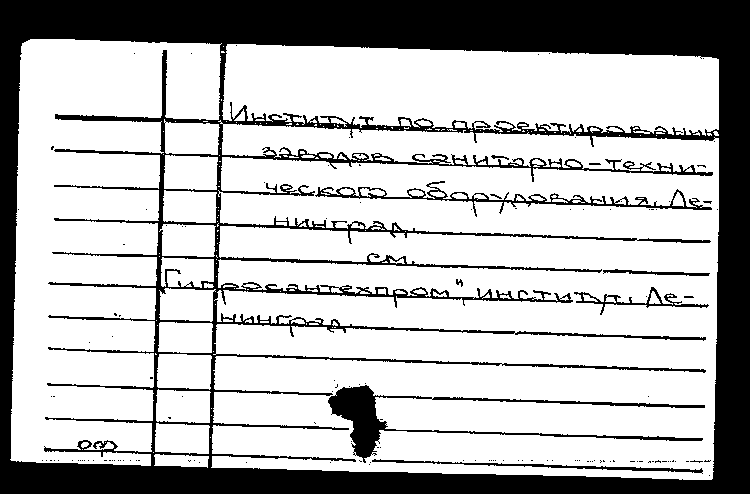 Институт по проектированию
заводов санитарно-техни-
ческого оборудования. Ле-
нинград.
см.
„Гипросантехпром", институт. Ле-
нинград.
оф